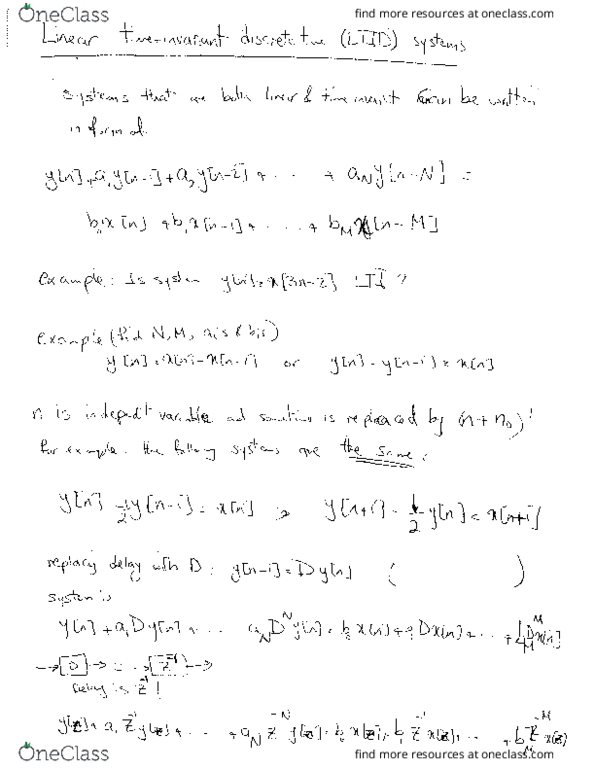 OneClass
find more resources at oneclass.com
Linear time-invariant discrete time (LTID) systems
systems that are both linear & time invariant can be written
in form of
y[n] + a₁y[n-1] + a₂y[n-2] + ... + a_N y[n-N] =
b₀x[n] + b₁x[n-1] + ... + b_M x[n-M]
example: Is system y[n] = x[3n-2] LTI ?
example (find N, M, ai's & bi's)
y[n] = x[n] - x[n-1] or y[n] - y[n-1] = x[n]
n is independt variable and sometimes is replaced by (n + n₀)!
For example. the following systems are the same:
y[n] - 1/2 y[n-1] = x[n] => y[n+1] - 1/2 y[n] = x[n+1]
replacing delay with D: y[n-1] = D y[n] ( )
system is
y[n] + a₁Dy[n] + ... a_N D^N y[n] = b₀x[n] + b₁Dx[n] + ... + b_M D^M x[n]
→[D]→ = →[z⁻¹]→
Delay is z⁻¹!
y[z] + a₁z⁻¹y[z] + ... + a_N z^-N y[z] = b₀x[z] + b₁z⁻¹x[z] + ... + b_M z^-M x[z]
OneClass
find more resources at oneclass.com